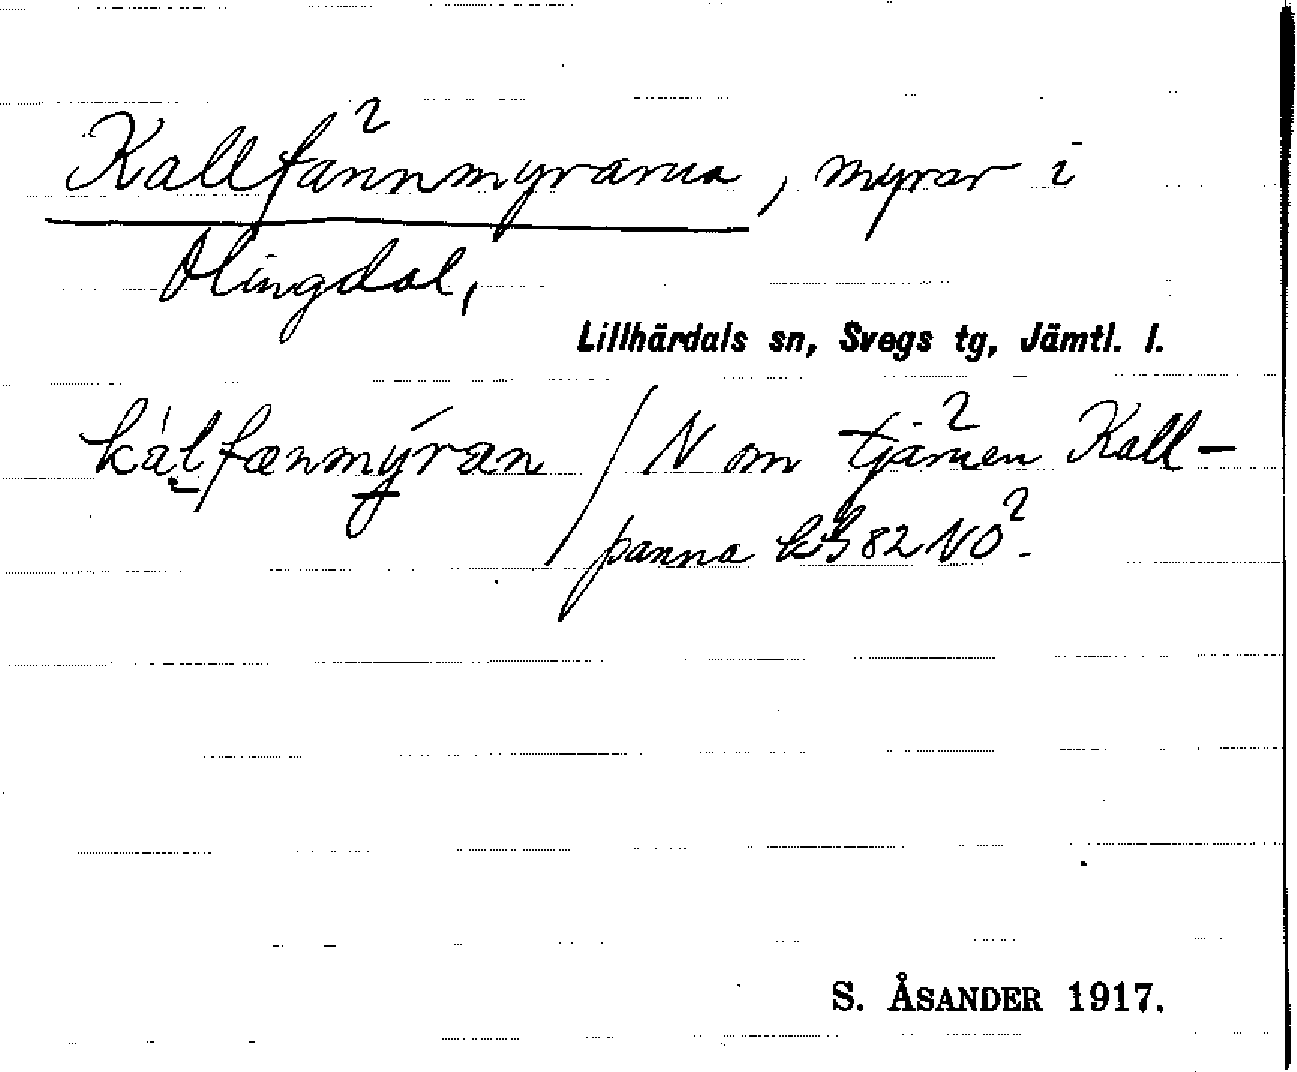 Kallfännmyrarna, myrar i
Olingdal,
Lillhärdals sn, Svegs tg, Jämtl. l.
kálfænmýran / N om tjärnen Kall-
panna 82 NO².
S. ÅSANDER 1917.